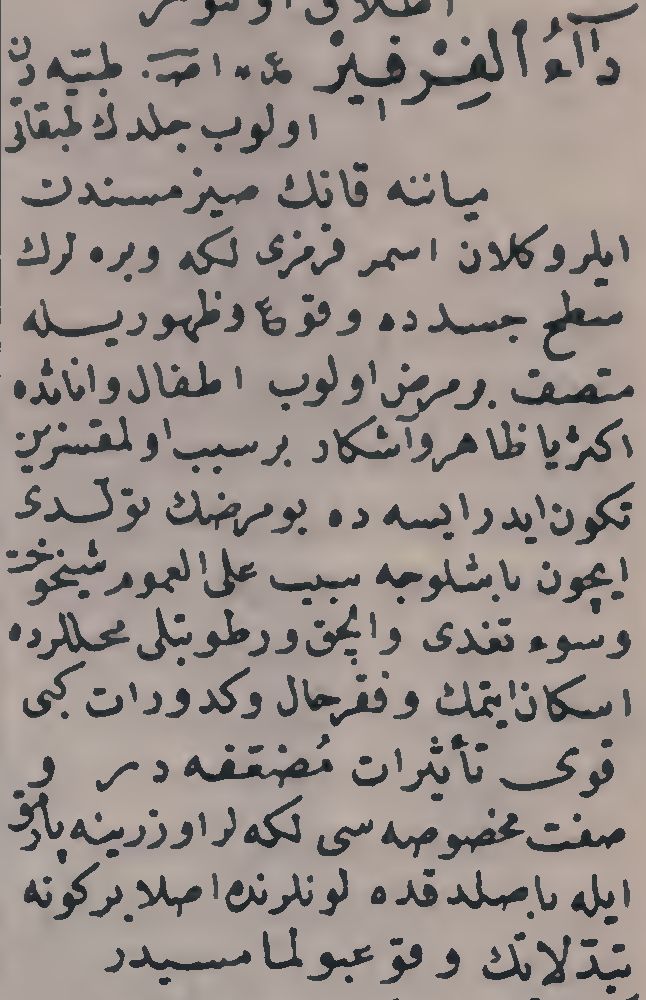 اطلاق اولنور
داۤءُ الفِرْفِيرْ ع. ا. ص. طبیه دن
اولوب جلدك طبقاتی
میاننه قانك صیزمسندن
ایلرو كلان اسمر قرمزی لكه وبره لرك
سطح جسدده وقوع وظهوریله
متصف برمرض اولوب اطفال واناثده
اكثریا ظاهر وآشكار برسبب اولمقسزین
تكون ایدر ایسه ده بومرضك تولّدی
ایچون باشلوجه سبب علی العموم شیخوخت
وسوء تغدی والچق ورطوبتلی محللرده
اسكان ایتمك وفقر حال وكدورات كبی
قوی تأثیرات مُضعفه در و
صفت مخصوصه سی لكه لر اوزرینه پارمق
ایله باصلدقده لونلرنده اصلا بركونه
تبدّلاتك وقوعبولمامسیدر